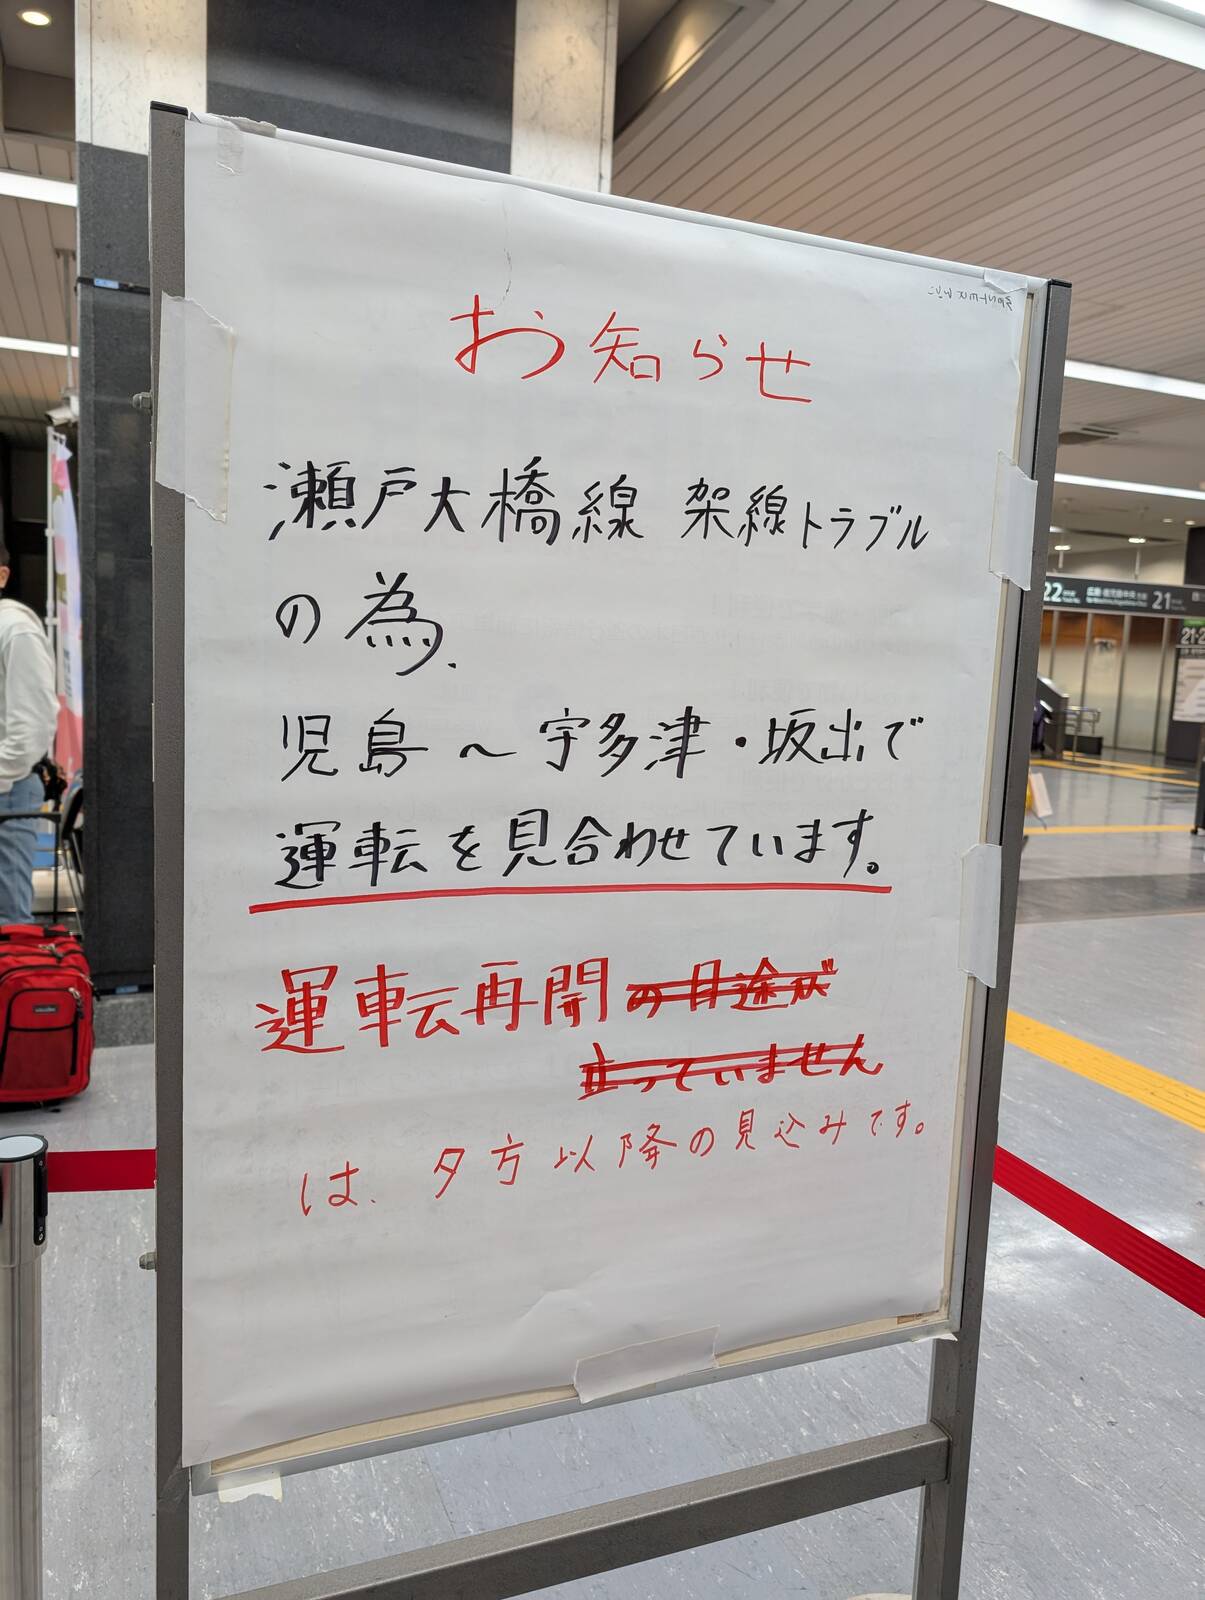 お知らせ
瀬戸大橋線 架線トラブル
の為、
児島～宇多津・坂出で
運転を見合わせています。
運転再開の目途が
立っていません
は、夕方以降の見込みです。
22
21
21-2